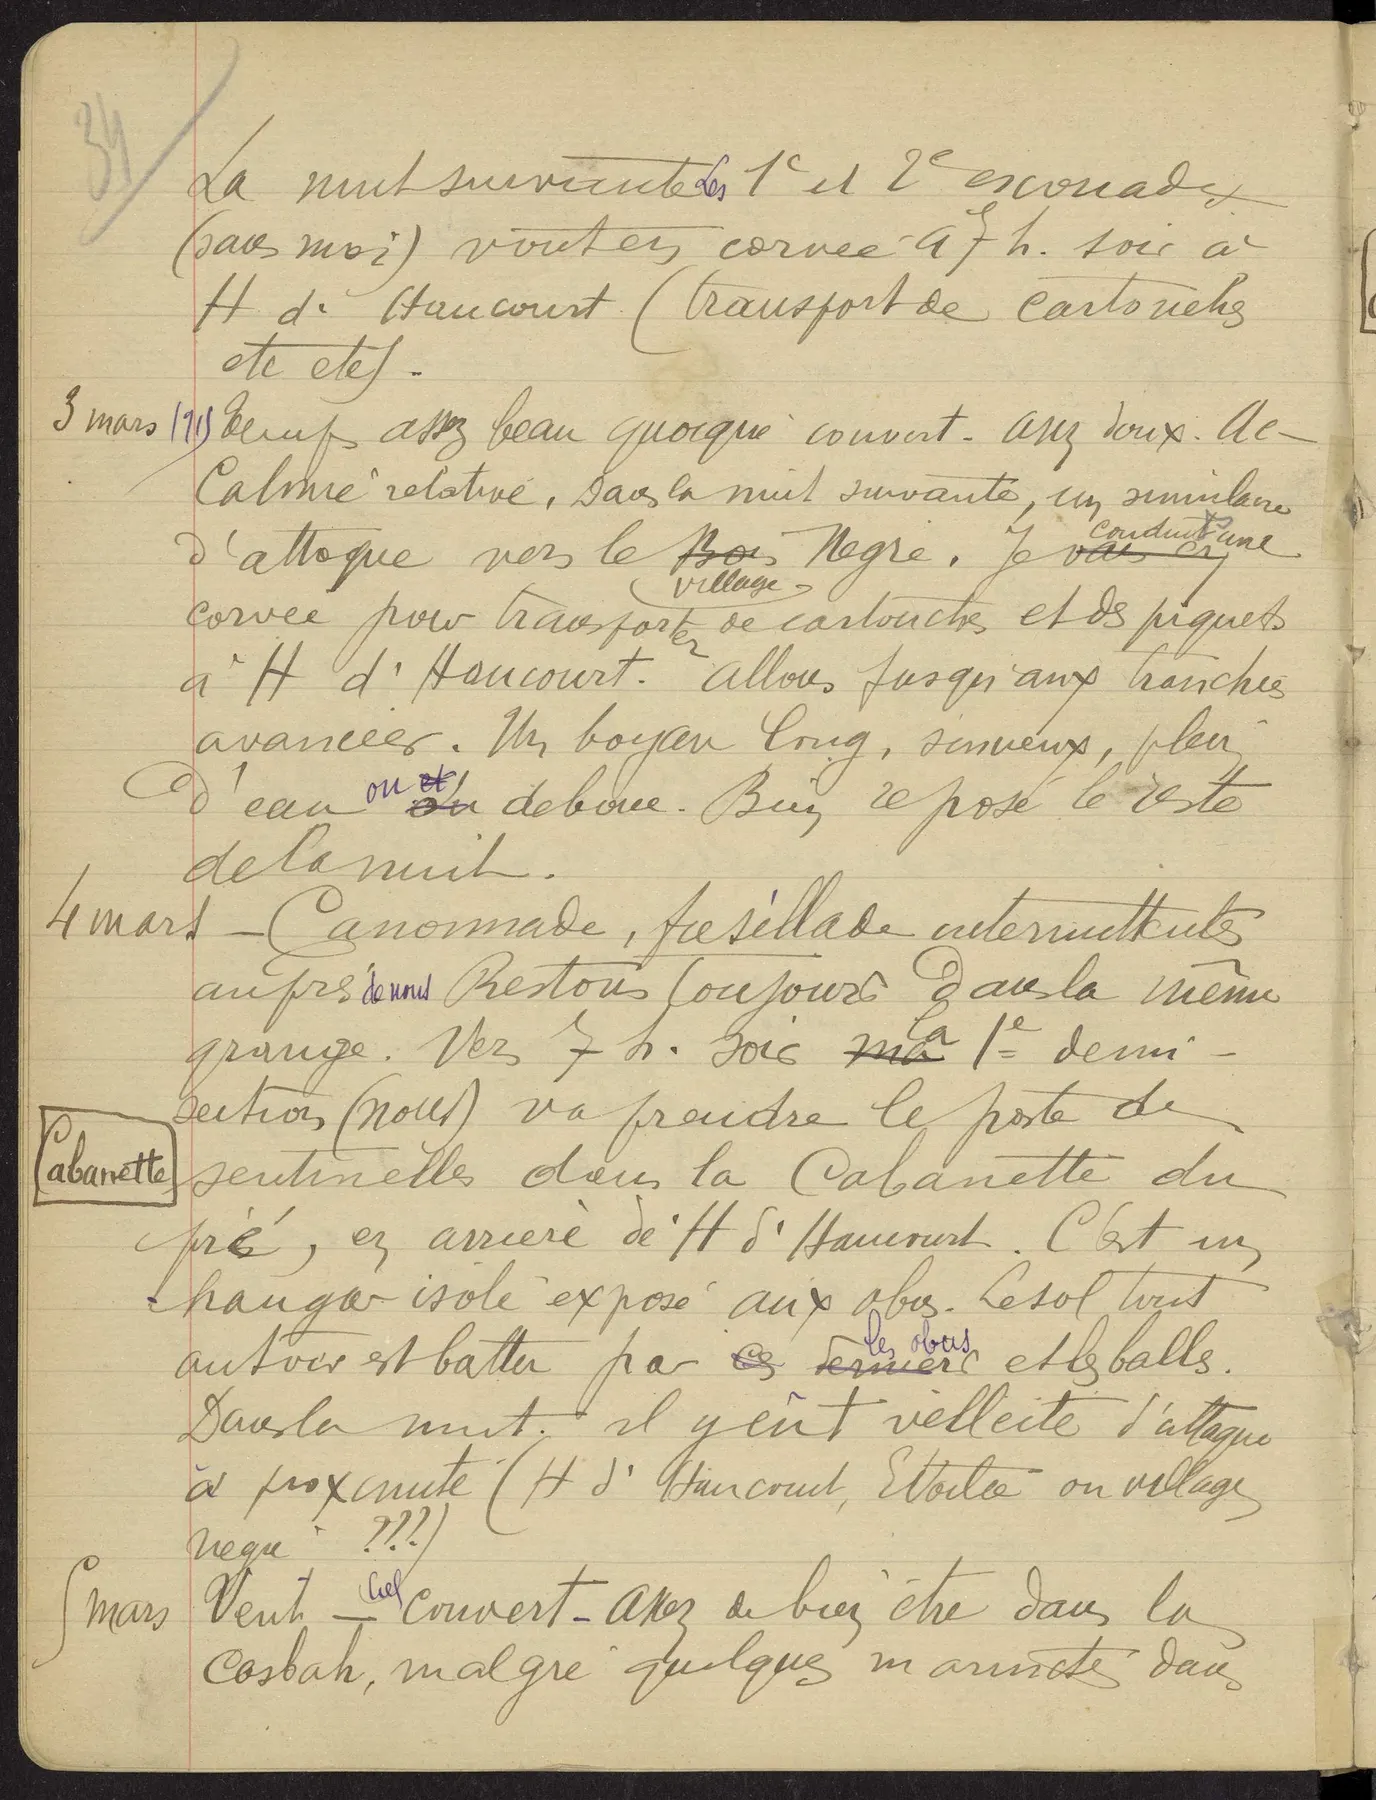 34
La nuit suivante les 1e et 2e escouades
(sans moi) vont en corvée à 7 h. soir à
H d'Haucourt (transport de cartouches
etc etc).
3 mars 1915 Temps assez beau quoique couvert - assez doux. Ac-
calmie relative. Dans la nuit suivante, un simulacre
d'attaque vers le Bois village Nègre. Je vais en conduit une
corvée pour transporter de cartouches et des piquets
à H d'Haucourt. Allons jusqu'aux tranchées
avancées. Un boyau long, sinueux, plein
d'eau ou et de boue. Bien reposé le reste
de la nuit.
4 mars - Canonnade, fusillade intermittentes
auprès de nous Restons toujours dans la même
grange. Vers 7 h. soir ma la 1e demi-
section (nous) va prendre le poste de
Cabanette
sentinelles dans la Cabanette du
pré, en arrière de H d'Haucourt. C'est un
hangar isolé exposé aux obus. Le sol tout
autour est battu par ces derniers les obus et les balles.
Dans la nuit. il y eût velléité d'attaque
à proximité (H d'Haucourt, Etoilée ou village
nègre ???)
5 mars Vent - Ciel couvert - Assez de bien être dans la
Casbah, malgré quelques marmites dans